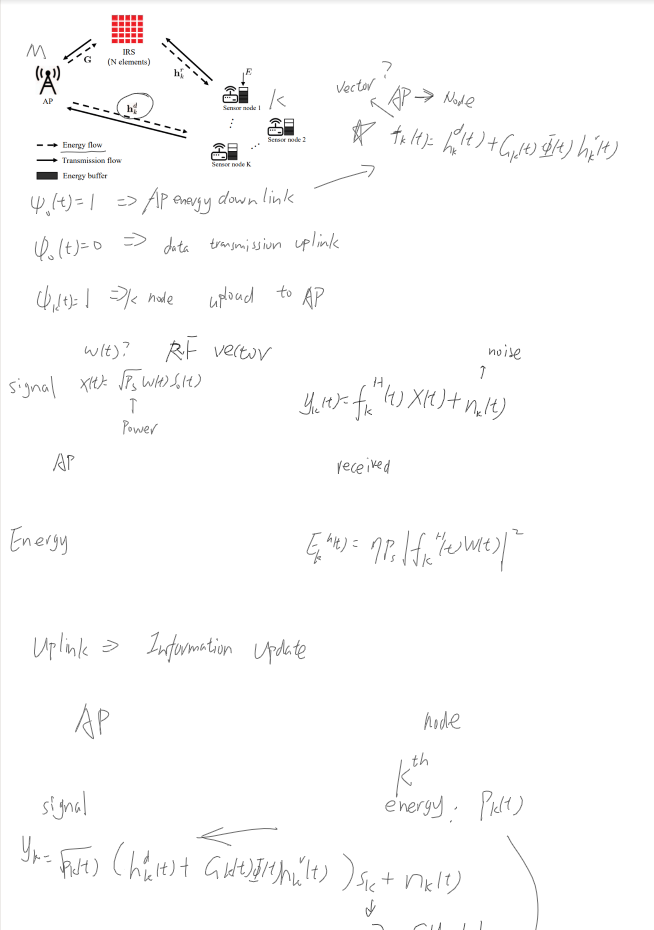 M
IRS
(N elements)
G
h_k^r
E
AP
h_k^d
Sensor node 1
k
Sensor node 2
Sensor node K
Energy flow
Transmission flow
Energy buffer
vector?
AP → Node
☆ f_k(t) = h_k^d(t) + G_k(t) Φ(t) h_k^r(t)
ψ_0(t)=1 => AP energy down link
ψ_0(t)=0 => data transmission uplink
ψ_k(t)=1 => k node upload to AP
w(t)? RF vector
noise
signal x(t) = √P_s w(t) s_0(t)
y_k(t) = f_k^H(t) X(t) + n_k(t)
Power
AP received
Energy E_k^h(t) = ηP_s |f_k^H(t) w(t)|^2
Uplink => Information Update
AP node
k^th
signal energy: P_k(t)
y_k = √P_k(t) (h_k^d(t) + G_k(t) Φ(t) h_k^r(t)) s_k + n_k(t)